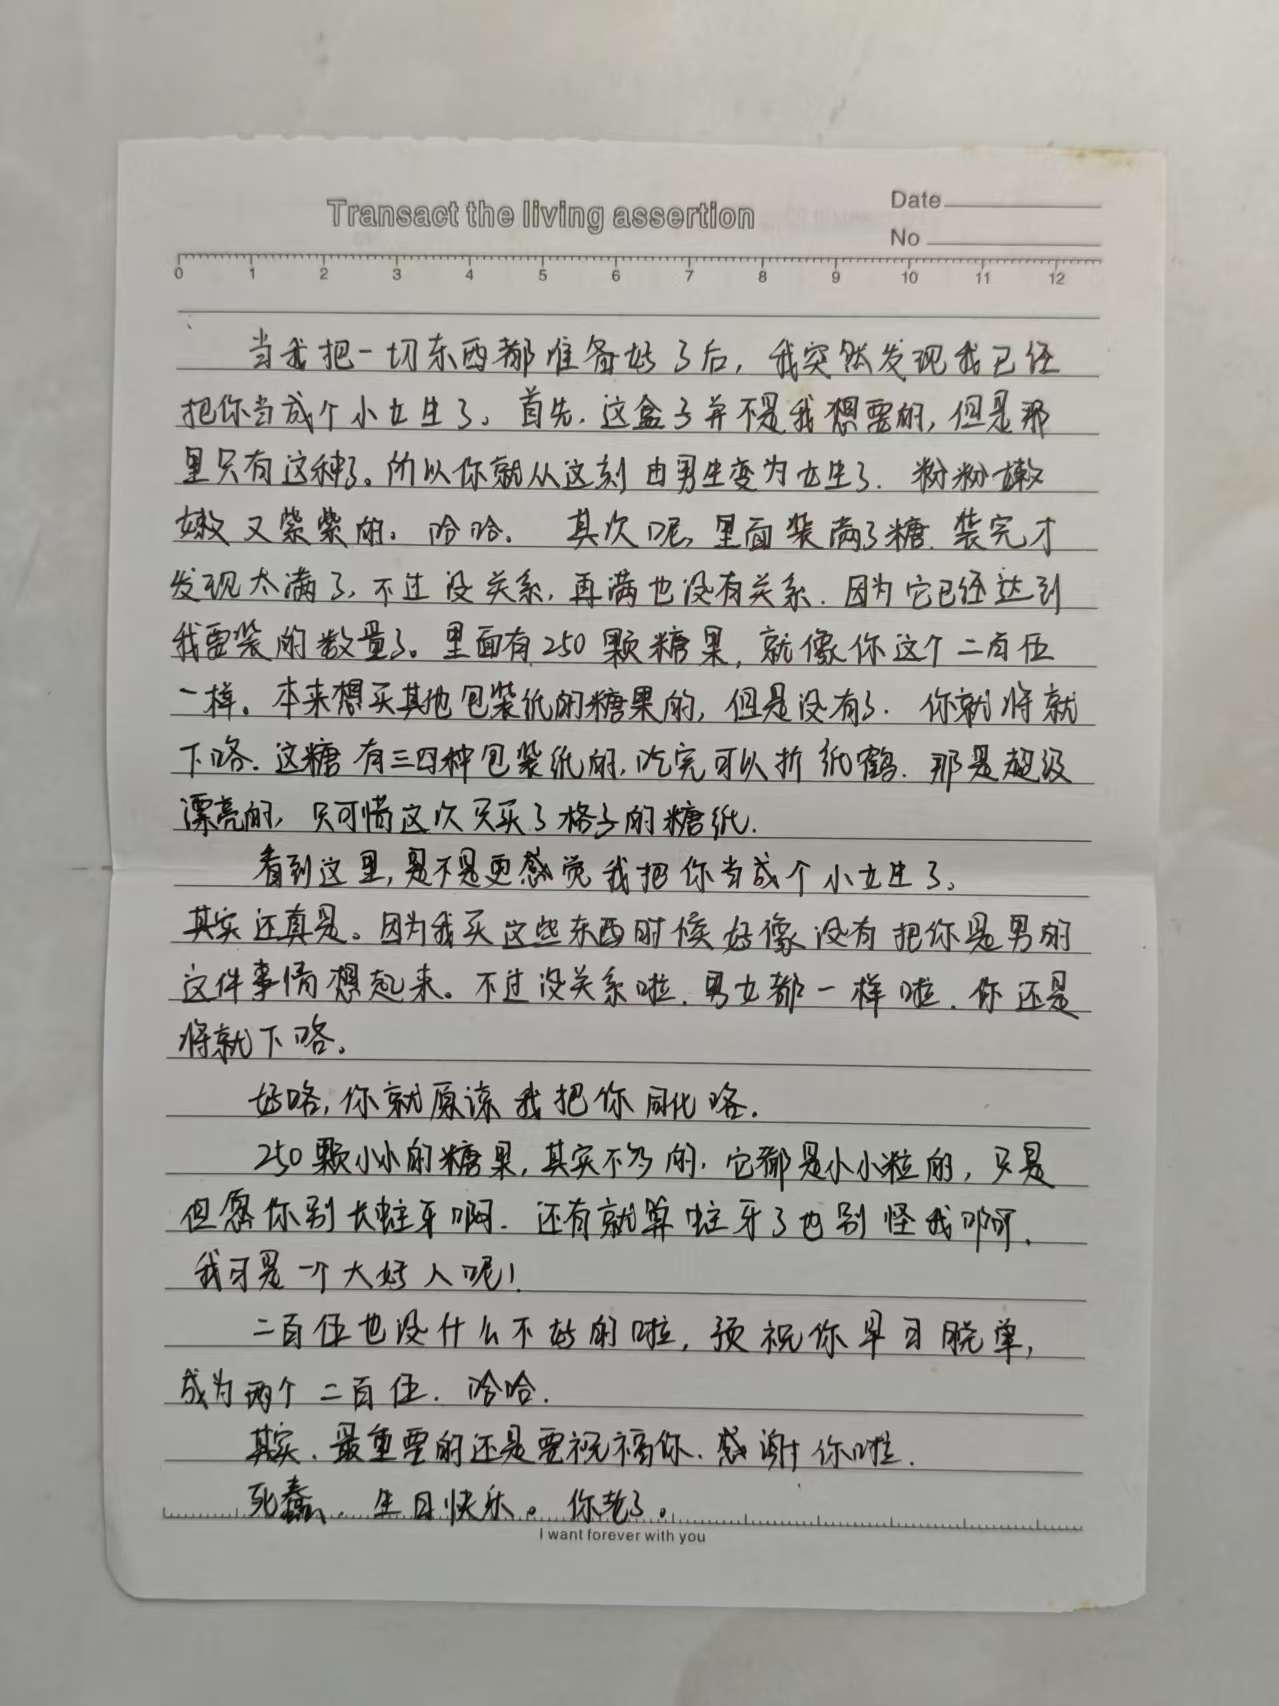 Transact the living assertion
Date
No
0 1 2 3 4 5 6 7 8 9 10 11 12
当我把一切东西都准备好了后，我突然发现我已经
把你当成个小女生了。首先，这盒子并不是我想要的，但是那
里只有这种了。所以你就从这刻由男生变为女生了．粉粉嫩
嫩又紫紫的。哈哈。其次呢，里面装满了糖．装完才
发现太满了，不过没关系，再满也没有关系．因为它已经达到
我要装的数量了。里面有250颗糖果，就像你这个二百伍
一样。本来想买其他包装纸的糖果的，但是没有了．你就将就
下咯．这糖有三四种包装纸的，吃完可以折纸鹤．那是超级
漂亮的，只可惜这次只买了格子的糖纸．
看到这里，是不是更感觉我把你当成个小女生了。
其实还真是。因为我买这些东西时候好像没有把你是男的
这件事情想起来。不过没关系啦．男女都一样啦．你还是
将就下咯。
好咯，你就原谅我把你同化咯．
250颗小小的糖果，其实不多的．它都是小小粒的，只是
但愿你别长蛀牙啊．还有就算蛀牙了也别怪我啊．
我可是一个大好人呢！
二百伍也没什么不好的啦，预祝你早日脱单，
成为两个二百伍．哈哈．
其实．最重要的还是要祝福你．感谢你啦．
死蠢、生日快乐。你老了。
I want forever with you